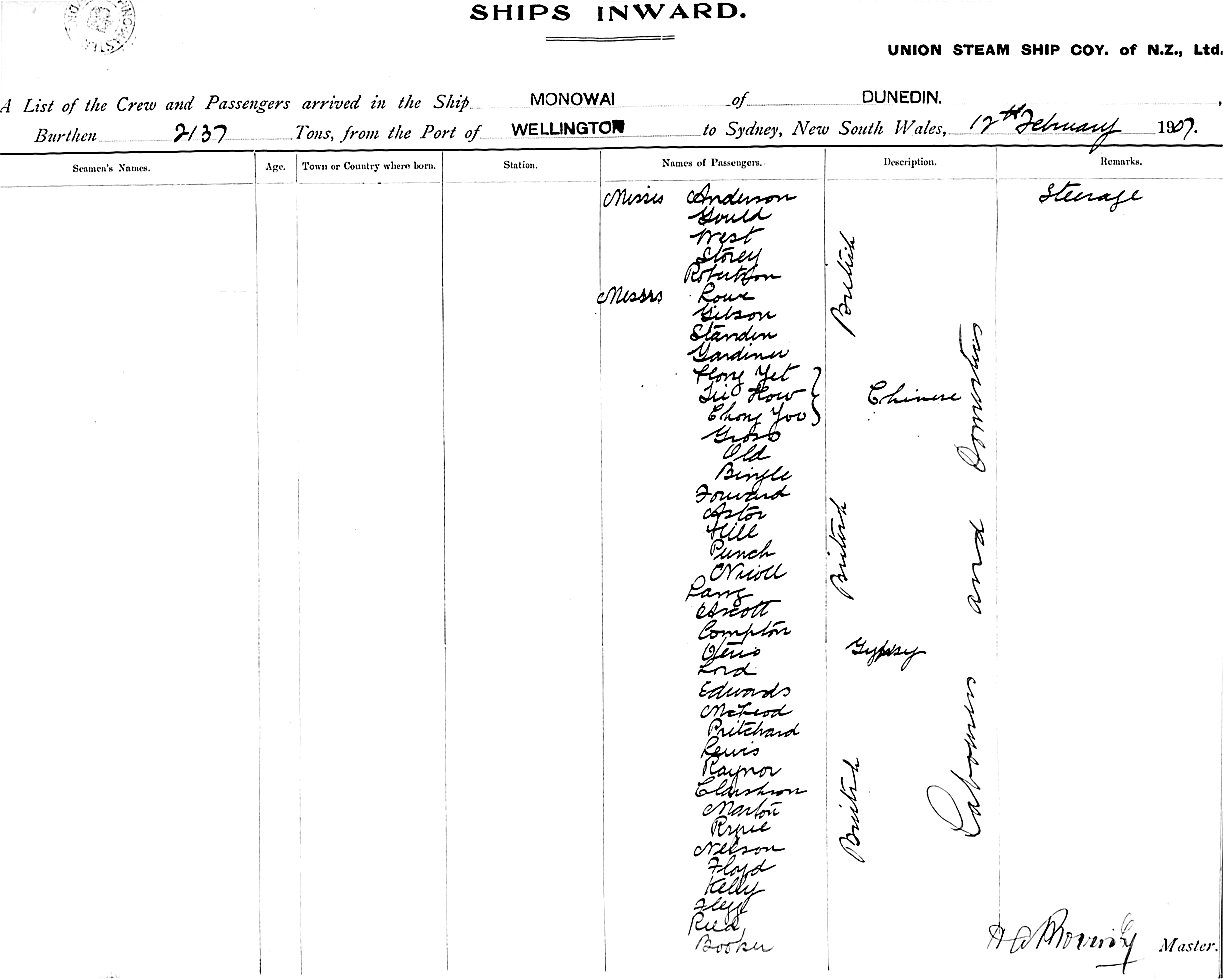 SHIPS INWARD.
UNION STEAM SHIP COY. of N.Z., Ltd.
A List of the Crew and Passengers arrived in the Ship MONOWAI of DUNEDIN,
Burthen 2137 Tons, from the Port of WELLINGTON to Sydney, New South Wales, 12th February 1907.
Seamen's Names. Age. Town or Country where born. Station. Names of Passengers. Description. Remarks.
Misses Anderson Steerage
Gould
West
Storey
Robertson
British
Messrs Lowe
Gibson
Standen
Gardiner
Hong Yet
How Chinese
Chong Yoo
Gross
Old
Bingle
Forward
Astor
Hill
Punch
British
Nicoll
Lang
Ascott
Compton
Gypsy
Lord
Edwards
McLeod
Pritchard
Lewis
Raynor
Clarkson
Marton
British
Nelson
Floyd
Kelly
Flegg
Reed
Booker
Labourers and Domestics
Master.